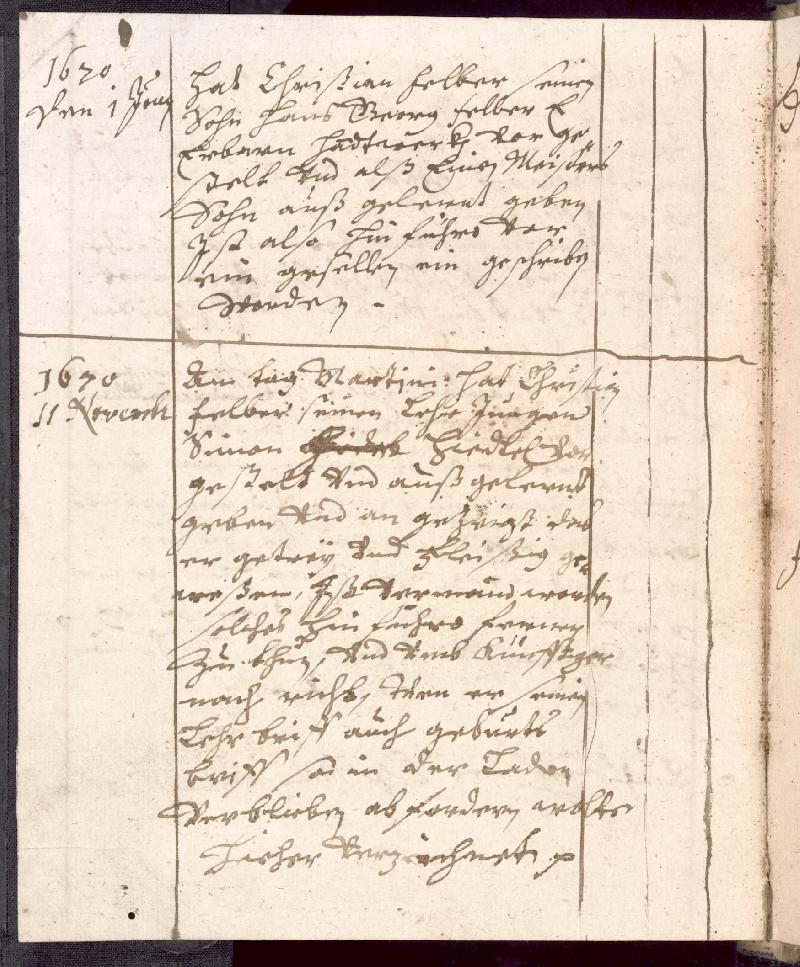 1670
Den 1 Juny
Hat Christian Felber seinen
Sohn Hans Georg Felber E
Erbarn Handtwerkh vor ge
stelt Vnd alß Einen Meisters
Sohn auß gelernt geben
Ist also hin führo Vor
ein gesellen ein geschriben
Worden
1670
11 Novemb
Am tag Martini hat Christian
Felber seinen Lehr Jungen
Simon Hiedtel Vor
gestelt Vnd auß gelernt
geben Vnd an gezeigt das
er getreÿ Vnd Fleissig ge
weßen, Ist Vermand worden
solches hin führo ferner
Zu thun, Vnd Vmb Künfftiger
nach richt, Wen er seinen
Lehr brieff auch geburts
brieff so in der Laden
Verblieben ab fordern wolte
hieher Verzeichnet